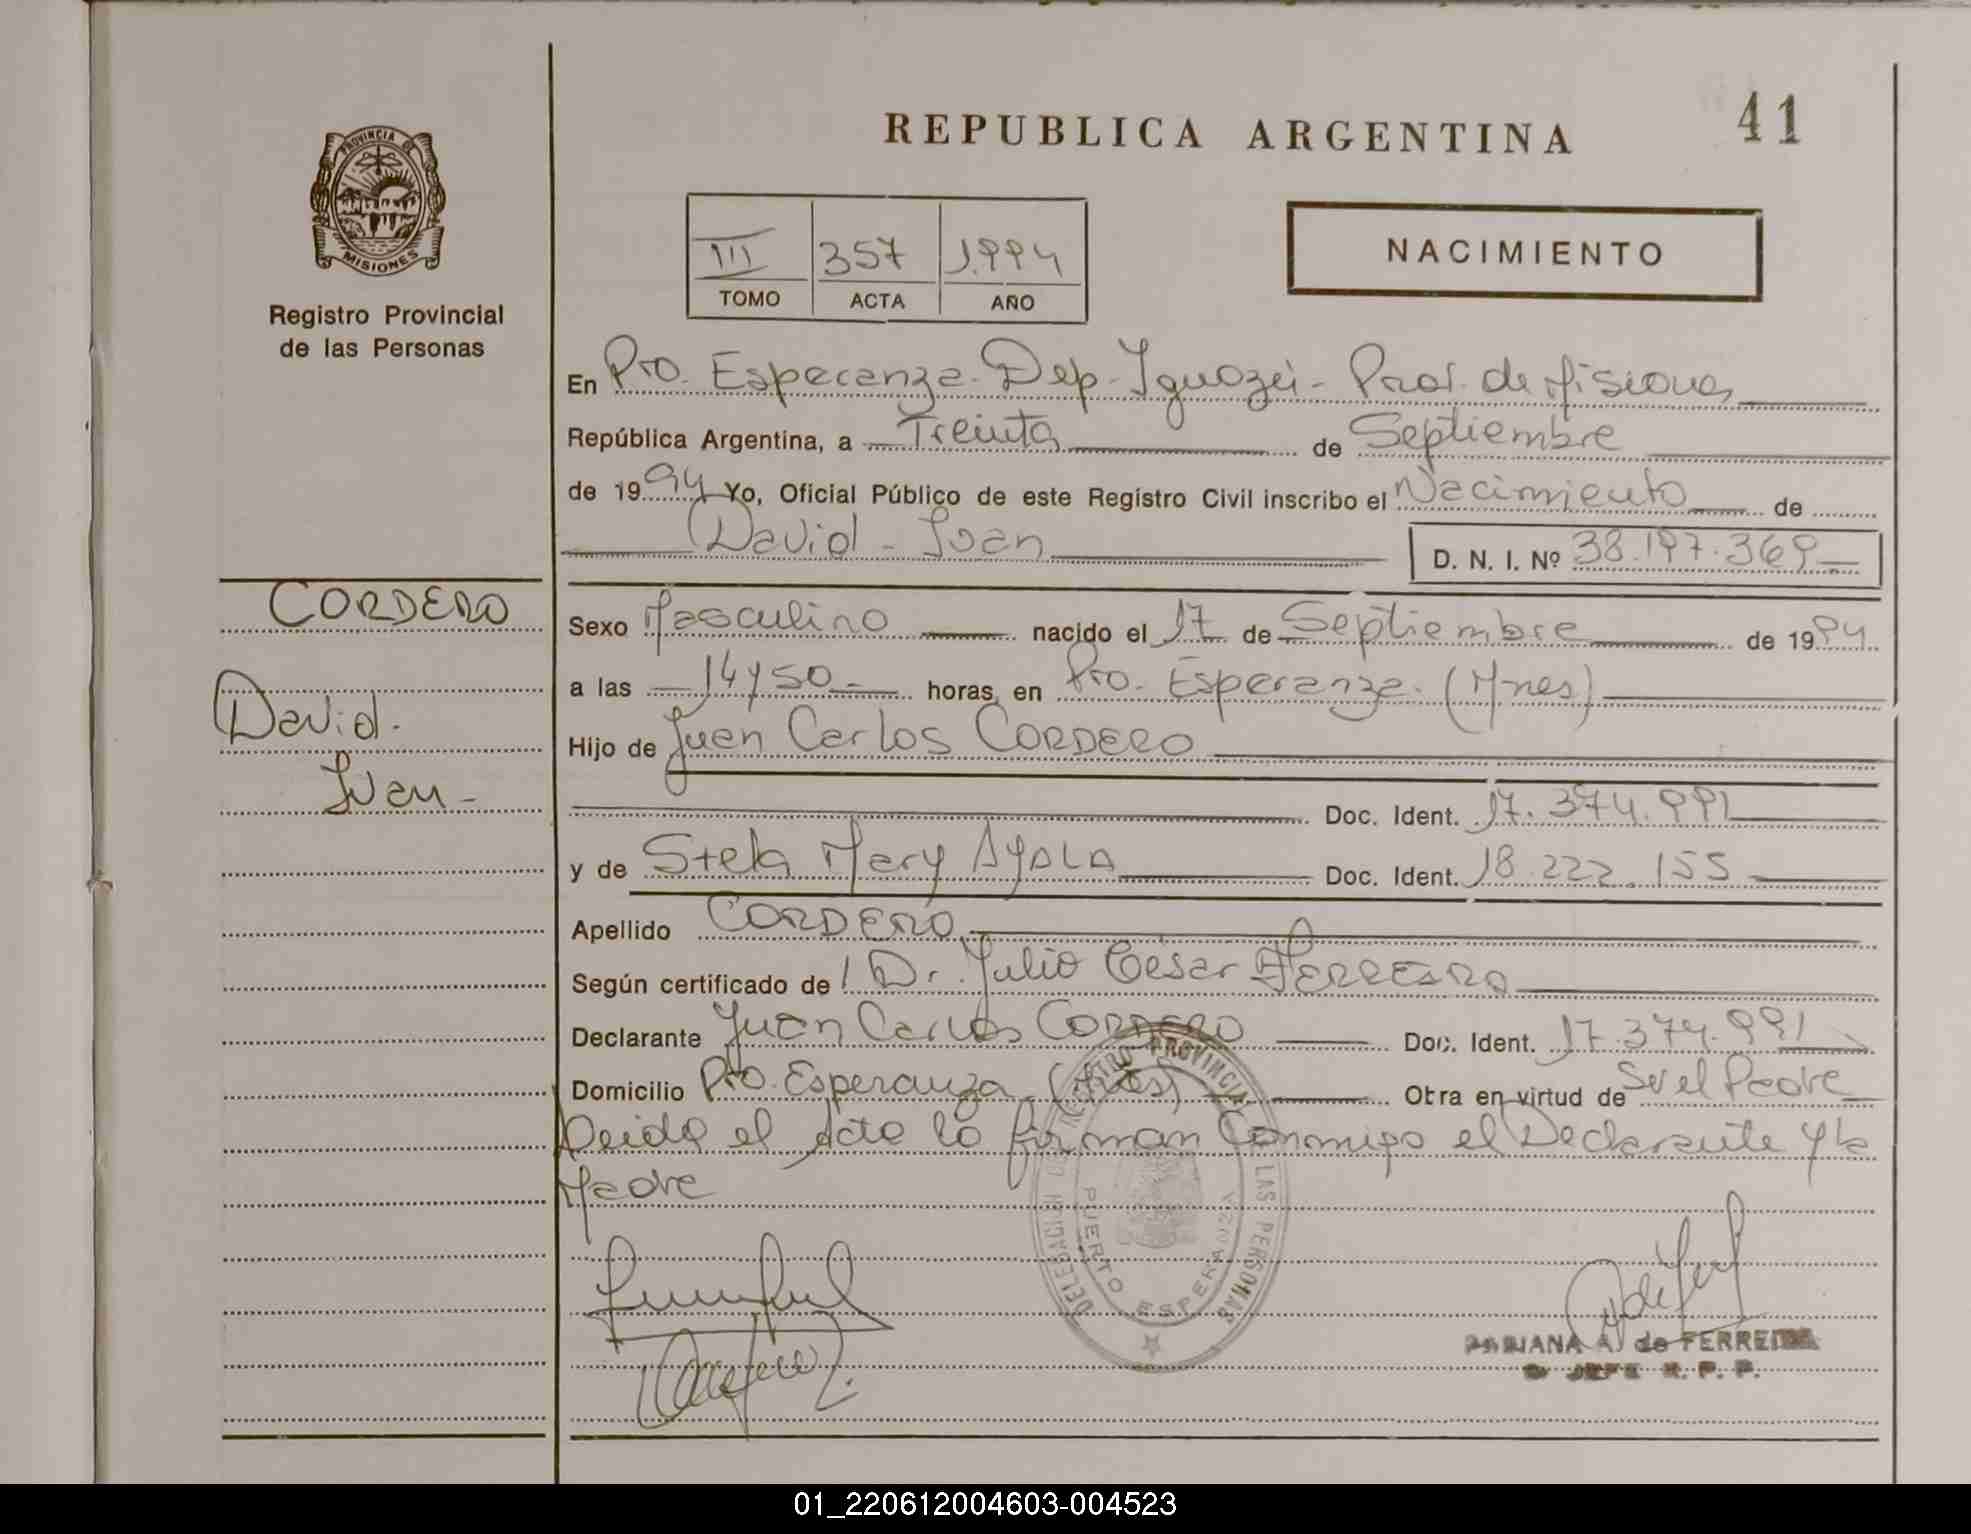 REPUBLICA ARGENTINA
41
PROVINCIA DE
MISIONES
Registro Provincial
de las Personas
III 357 1.994
TOMO ACTA AÑO
NACIMIENTO
En Pto. Esperanza - Dep - Iguazú - Prov. de Misiones
República Argentina, a Treinta de Septiembre
de 1994 Yo, Oficial Público de este Registro Civil inscribo el Nacimiento de
David - Ivan D. N. I. Nº 38.197.369
CORDERO
David.
Ivan -
Sexo Masculino nacido el 17 de Septiembre de 1994
a las 14 y 50 - horas, en Pto. Esperanza. (Mnes)
Hijo de Juan Carlos CORDERO
Doc. Ident. 17.374.991
y de Stela Mary AYALA Doc. Ident. 18.222.155
Apellido CORDERO
Según certificado de Dr. Julio César FERREYRA
Declarante Juan Carlos CORDERO Doc. Ident. 17.374.991
Domicilio Pto. Esperanza (Mnes) Otra en virtud de Ser el Padre
Leida el Acta la firman Conmigo el Declarante y la
Madre
DELEGACION DEL REGISTRO PROVINCIAL DE LAS PERSONAS
PUERTO ESPERANZA
MARIANA A. de FERREIRA
JEFE R. P. P.
01_220612004603-004523